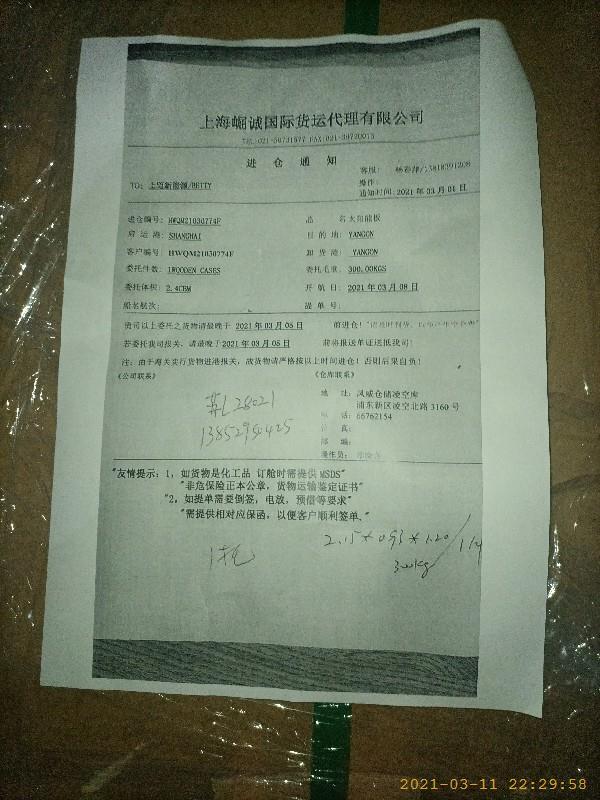 上海崛诚国际货运代理有限公司
TEL:021-50731577 FAX:021-39720015
进 仓 通 知
客服:
操作:
TO: 上迈新能源/BETTY
通知时间: 2021 年 03 月 01 日
进仓编号: HWQM21030774F 品 名 太阳能板
启 运 港: SHANGHAI 目 的 地: YANGON
客户编号: HWQM21030774F 卸 货 港: YANGON
委托件数: 1WOODEN CASES 委托毛重: 300.00KGS
委托体积: 2.4CBM 开 航 日: 2021 年 03 月 08 日
船名航次: 提 单 号:
贵司以上委托之货物请最晚于 2021 年 03 月 05 日 前进仓!
若委托我司报关, 请最晚于 2021 年 03 月 05 日 前将报送单证送抵我司!
注: 由于海关实行货物进港报关, 故货物请严格按以上时间进仓! 否则后果自负!
《公司联系》 《仓库联系》
地 址: 凤威仓储凌空库
浦东新区凌空北路 3160 号
电 话: 66762154
传 真:
邮 编:
操作员:
苏L28021
"友情提示: 1, 如货物是化工品 订舱时需提供 MSDS"
"非危保险正本公章, 货物运输鉴定证书"
"2, 如提单需要倒签, 电放, 预借等要求"
"需提供相对应保函, 以便客户顺利签单."
2.15*0.93*1.20
300kg
2021-03-11 22:29:58